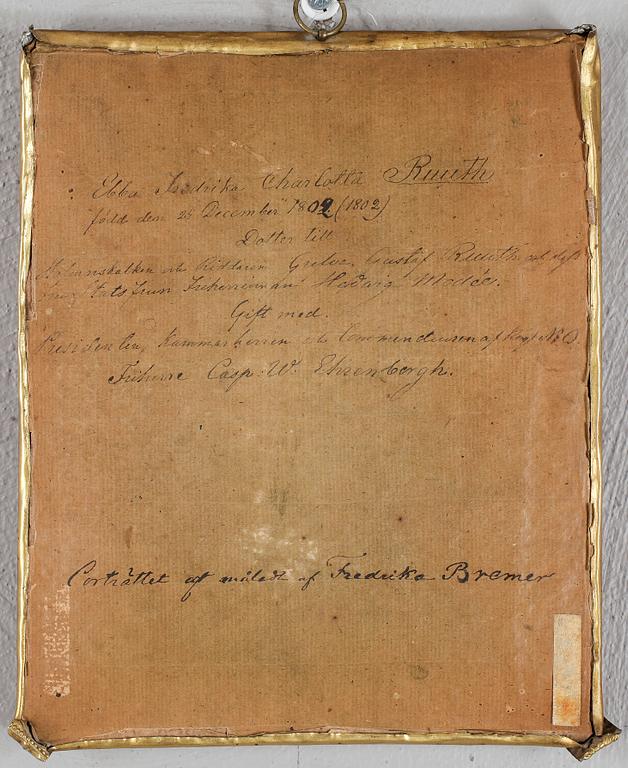 Ebba Fredrika Charlotta Ruuth
född den 24 December 1802 (1802)
Dotter till
och Riddaren Grefve Gustaf Ruuth och
Stats frun Friherrinnan Hedvig Modée.
Gift med.
Presidenten, Kammarherren och Commendeuren af Kongl N. O.
Friherre Casp: W. Ehrenborgh.
Porträttet måladt af Fredrika Bremer